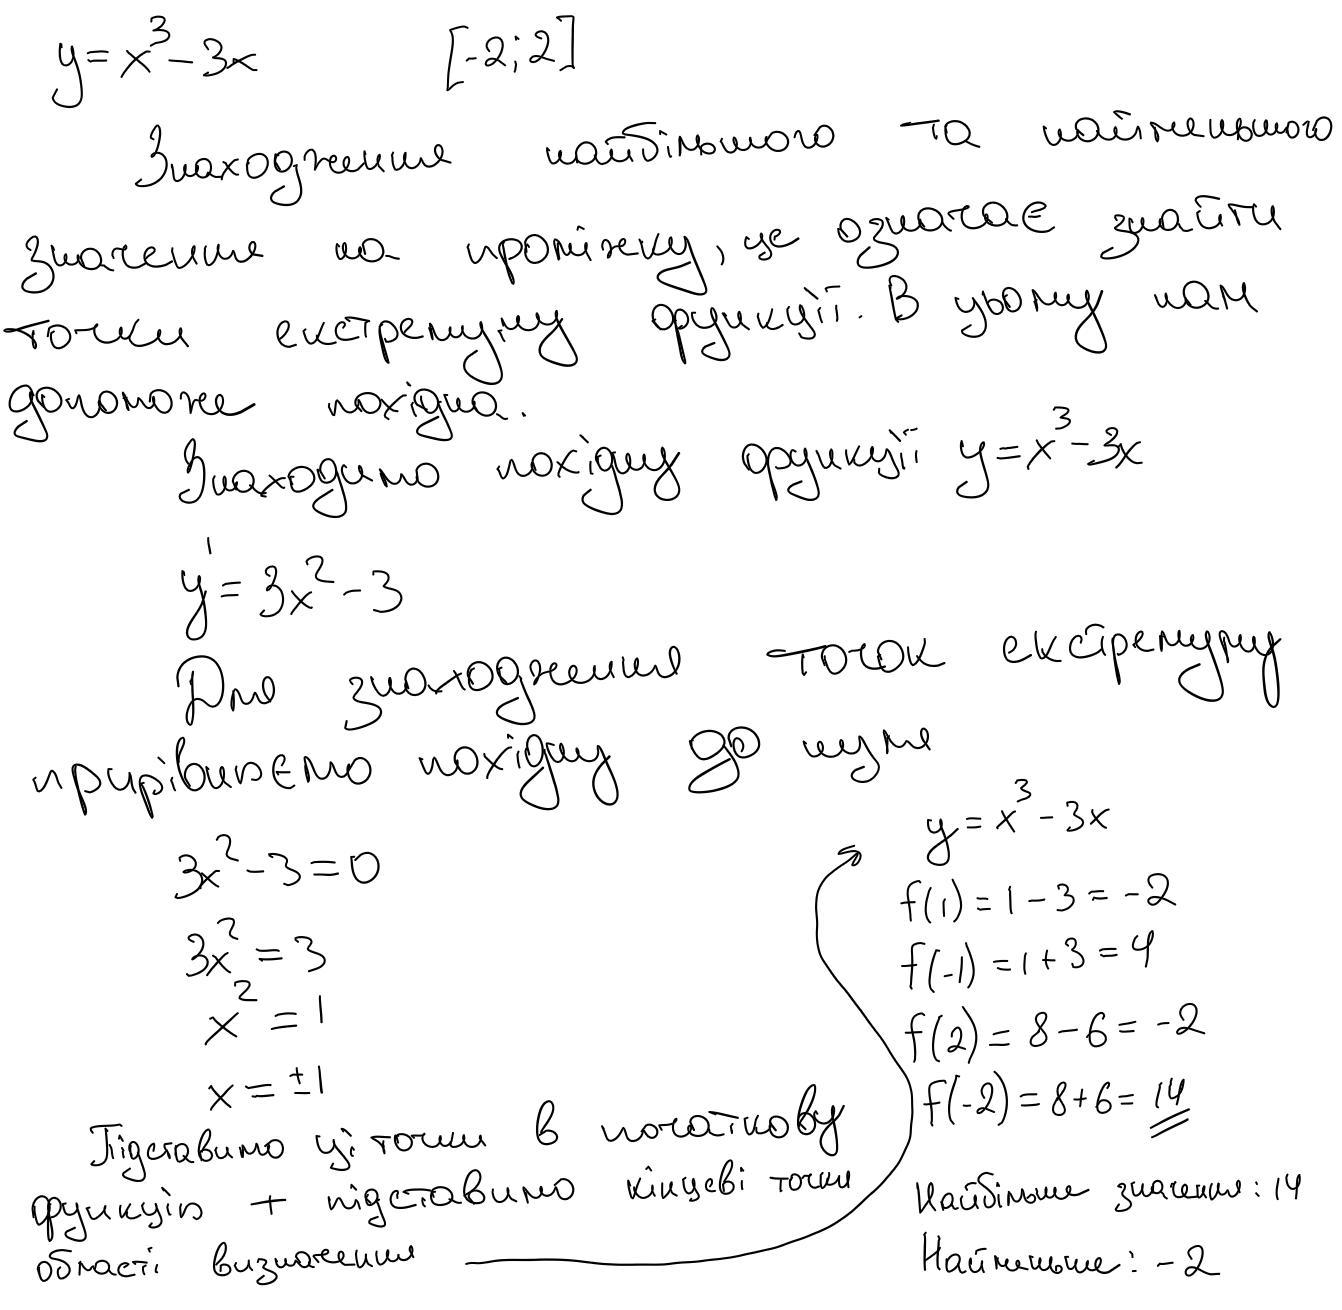 y=x³-3x [-2;2]
Знаходження найбільшого та найменшого
значення на проміжку, це означає знайти
точки екстремуму функції. В цьому нам
допоможе похідна.
Знаходимо похідну функції y=x³-3x
y'=3x²-3
Для знаходження точок екстремуму
прирівнюємо похідну до нуля
3x²-3=0
3x²=3
x²=1
x=±1
Підставимо ці точки в початкову
функцію + підставимо кінцеві точки
області визначення
y=x³-3x
f(1)=1-3=-2
f(-1)=1+3=4
f(2)=8-6=-2
f(-2)=8+6=14
Найбільше значення: 14
Найменьше: -2